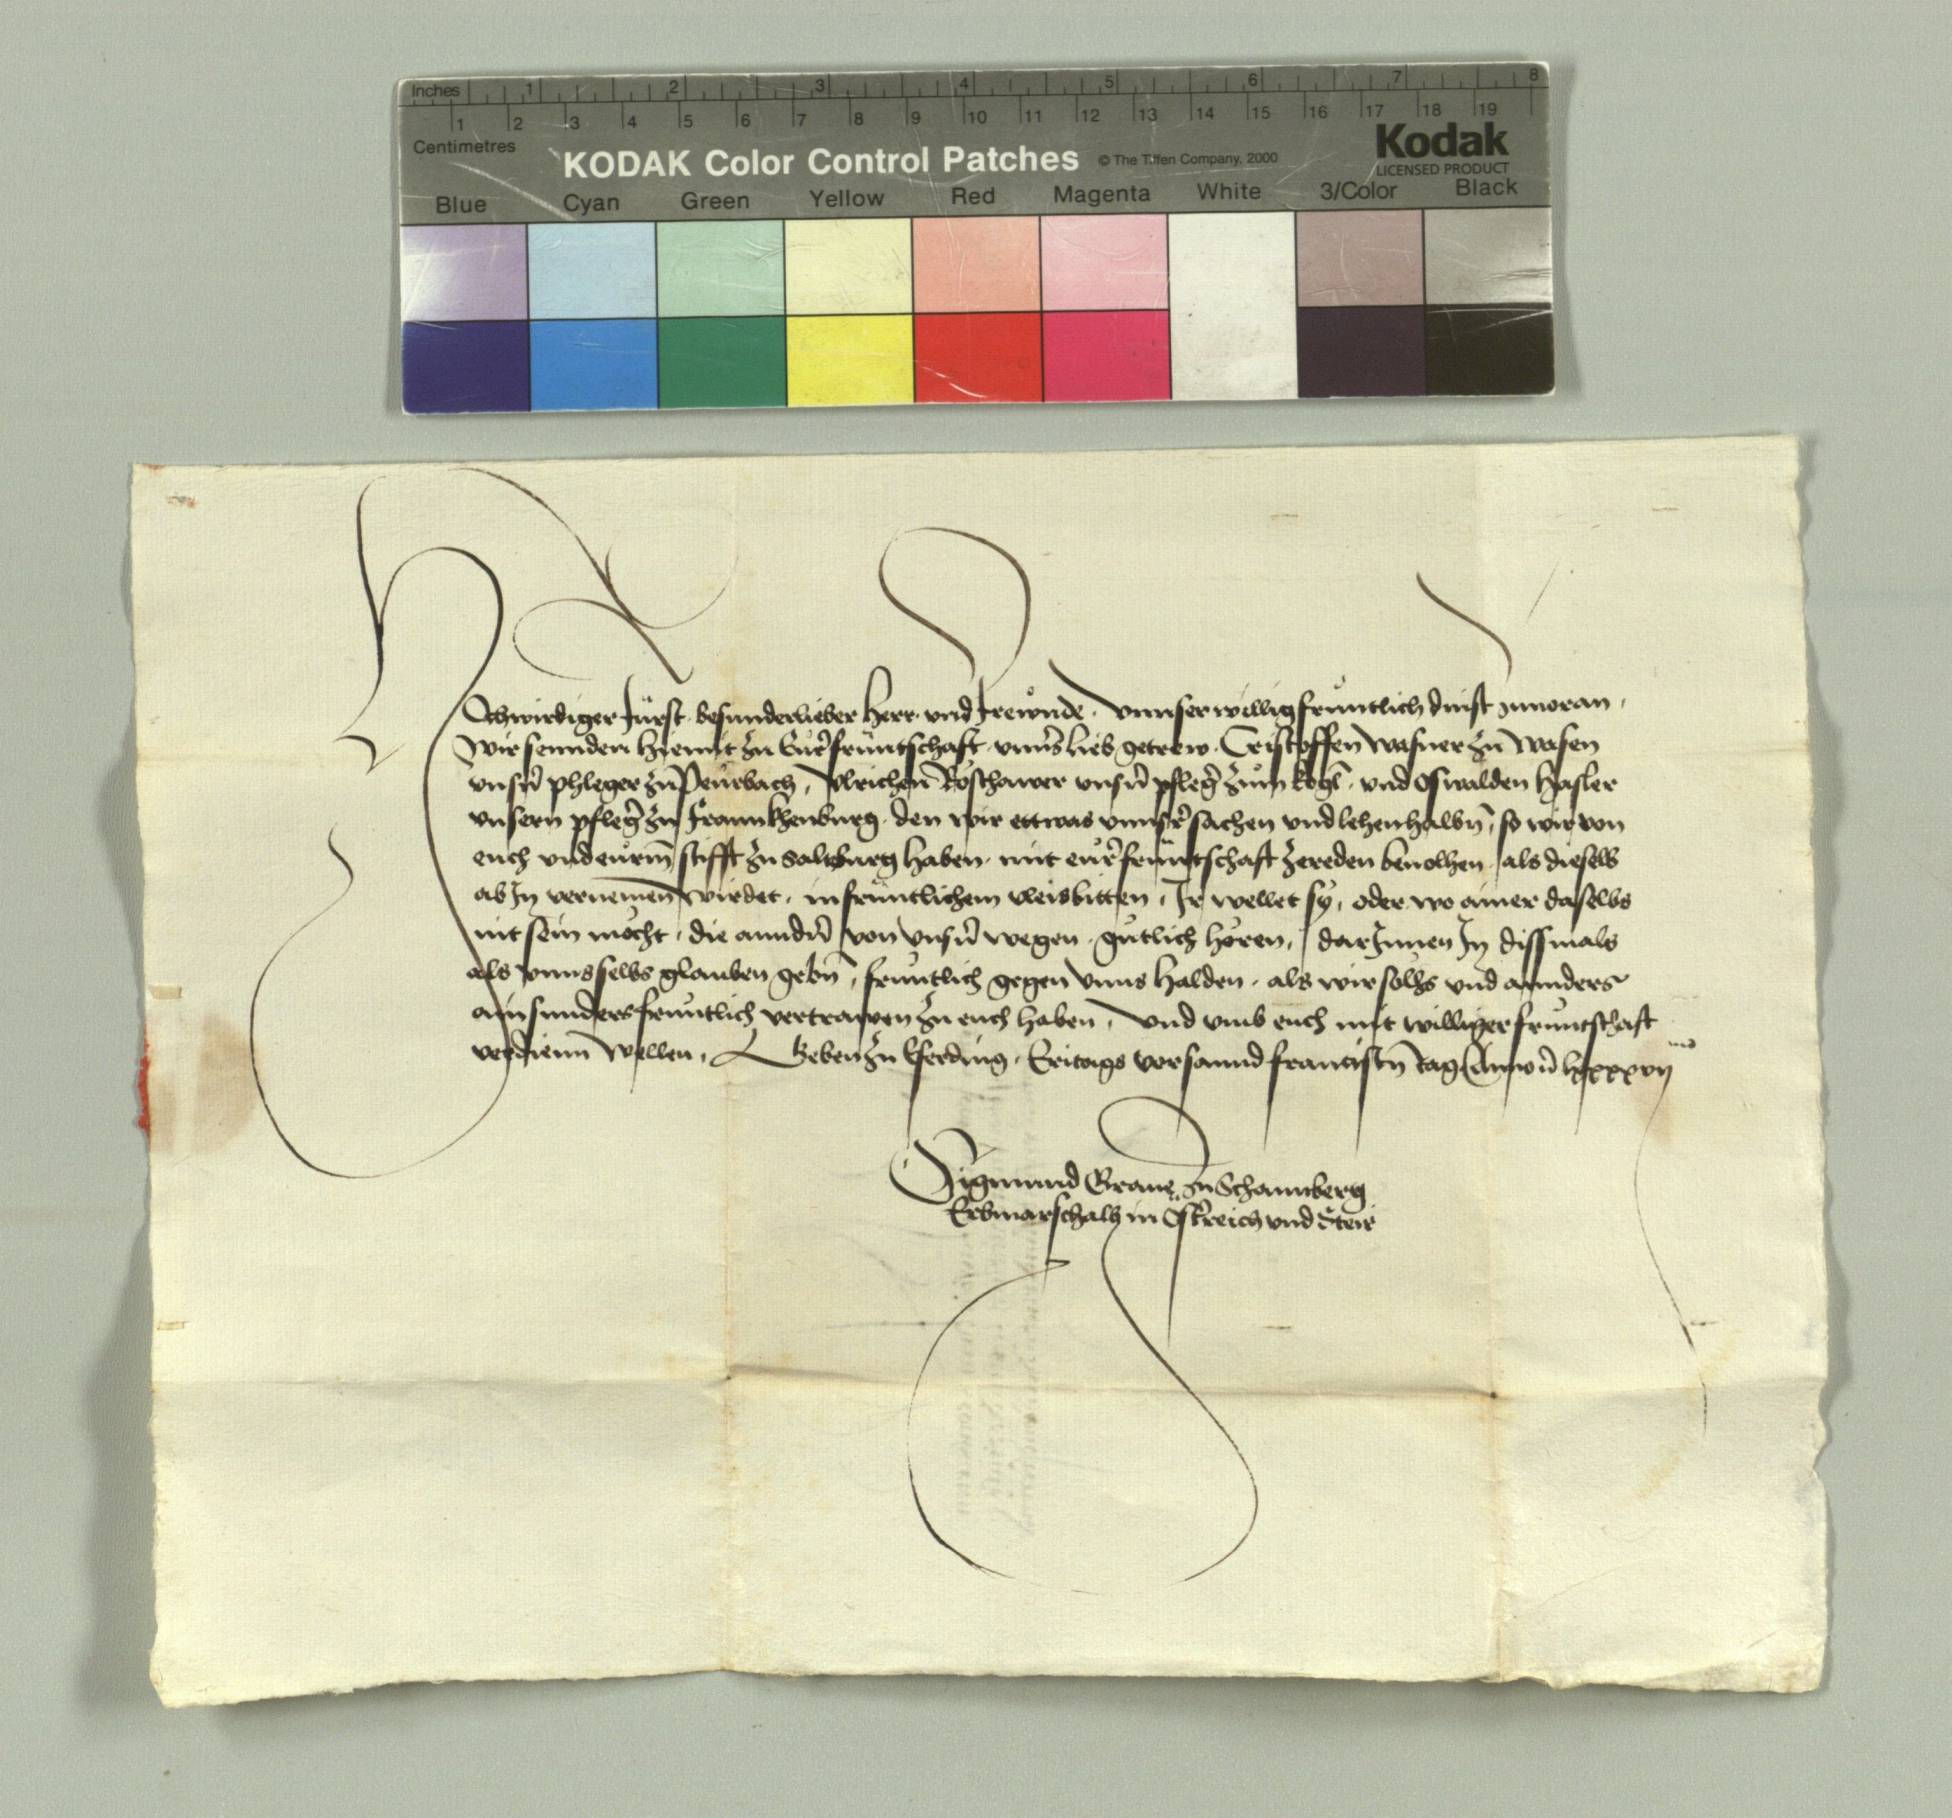 Inches 1 2 3 4 5 6 7 8
1 2 3 4 5 6 7 8 9 10 11 12 13 14 15 16 17 18 19
Centimetres
KODAK Color Control Patches © The Tiffen Company, 2000 Kodak
LICENSED PRODUCT
Blue Cyan Green Yellow Red Magenta White 3/Color Black
Hochwirdiger Fürst besunderlieber Herr und Frewnde. Vnnser willig früntlich dinst zuuoran.
Wir sennden hiemit zu Eur̃ früntschaft vnns̃ lieb getrew. Cristoffen Wasner zu Wasen
vnsr̃n phleger zu Peürbach, Vlrichen Röschawer vnsr̃n pflegr̃ zum Kogl. und Oswalden Hasler
vnsern pflegr̃ zu Frannkhenburg. den wir ettwas vnnsr̃ sachen vnd lehenhalbn̄, so wir von
euch vnd eurm̄ stifft zu Saltzburg haben. mit eur̃ früntschaft zereden beuolhen. als dieselb
ab In vernemen wirdet. in früntlichem vleis bitten, Ir wellet sy, oder wo ainer daselbs
nit sein mocht. die anndr̃n von vnsr̃n wegen. gütlich hören, darInnen In dissmals
als vnnsselbs glauben gebn̄, früntlich gegen vnns halden. als wir solhs vnd annders
ain sunders früntlich vertrawen zu euch haben, Vnd vmb euch mit williger früntschaft
verdienn̄ wellen, Geben zu Eferding. Eritags vor sannd Francistn̄ tag Annor̃ lxxxvij
Sigmund Graue zu Schaunberg
Erbmarschalh in Öst̃reich vnd Steir